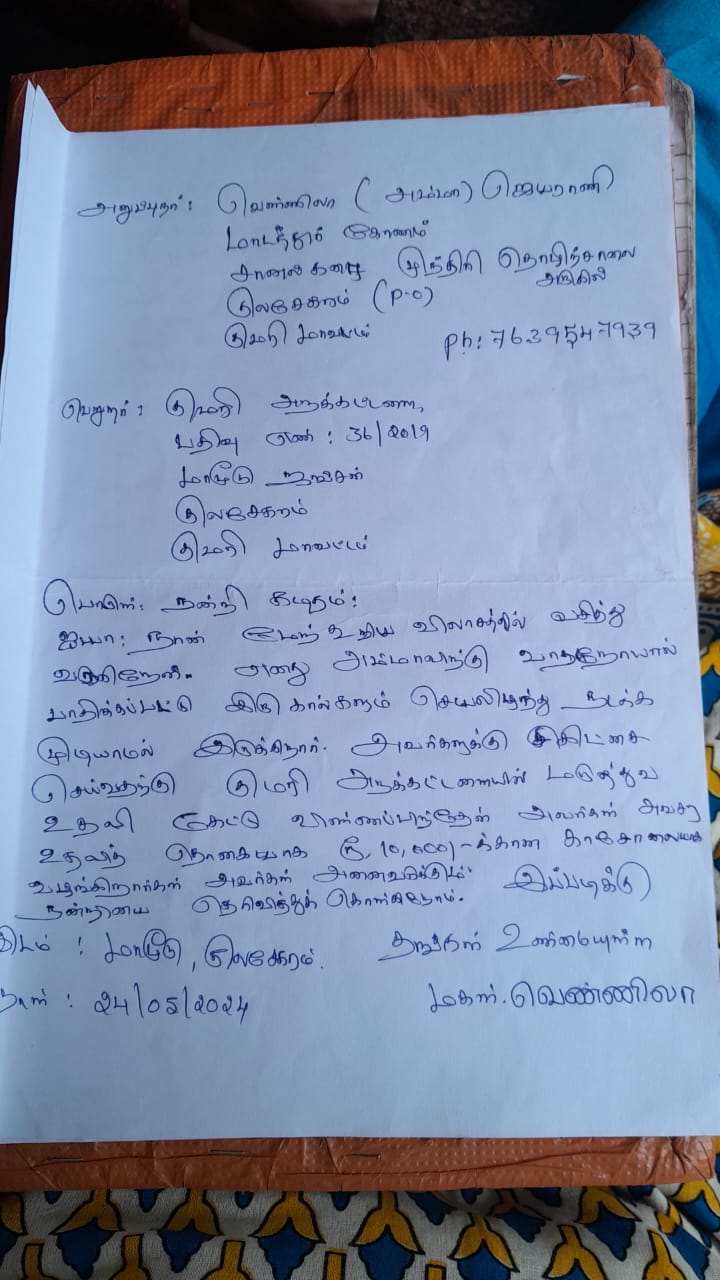 அனுப்புநர்: வெண்ணிலா (அம்மா) ஜெயராணி
மாடத்தூர் கோணம்
சானல்கரை முந்திரி தொழிற்சாலை
அருகில்
குலசேகரம் (P.O)
குமரி மாவட்டம்
ph: 7639547939
பெறுநர்: குமரி அறக்கட்டளை,
பதிவு எண்: 36/2019
குலசேகரம்
குமரி மாவட்டம்
பொருள்: நன்றி கடிதம்:
ஐயா: நான் மேற்கூறிய விலாசத்தில் வசித்து
வருகிறேன். எனது அம்மாவிற்கு வாதநோயால்
பாதிக்கப்பட்டு இரு கால்களும் செயலிழந்து நடக்க
முடியாமல் இருக்கிறார். அவர்களுக்கு சிகிட்சை
செய்வதற்கு குமரி அறக்கட்டளையில் மருத்துவ
உதவி கேட்டு விண்ணப்பித்தேன் அவர்கள் அவசர
உதவித் தொகையாக ரூ, 10,000/-க்கான காசோலையை
வழங்கினார்கள் அவர்கள் அனைவருக்கும்
நன்றியை தெரிவித்துக் கொள்கிறோம். இப்படிக்கு
இடம்: குலசேகரம். தங்கள் உண்மையுள்ள
நாள்: 24/05/2024 மகள். வெண்ணிலா